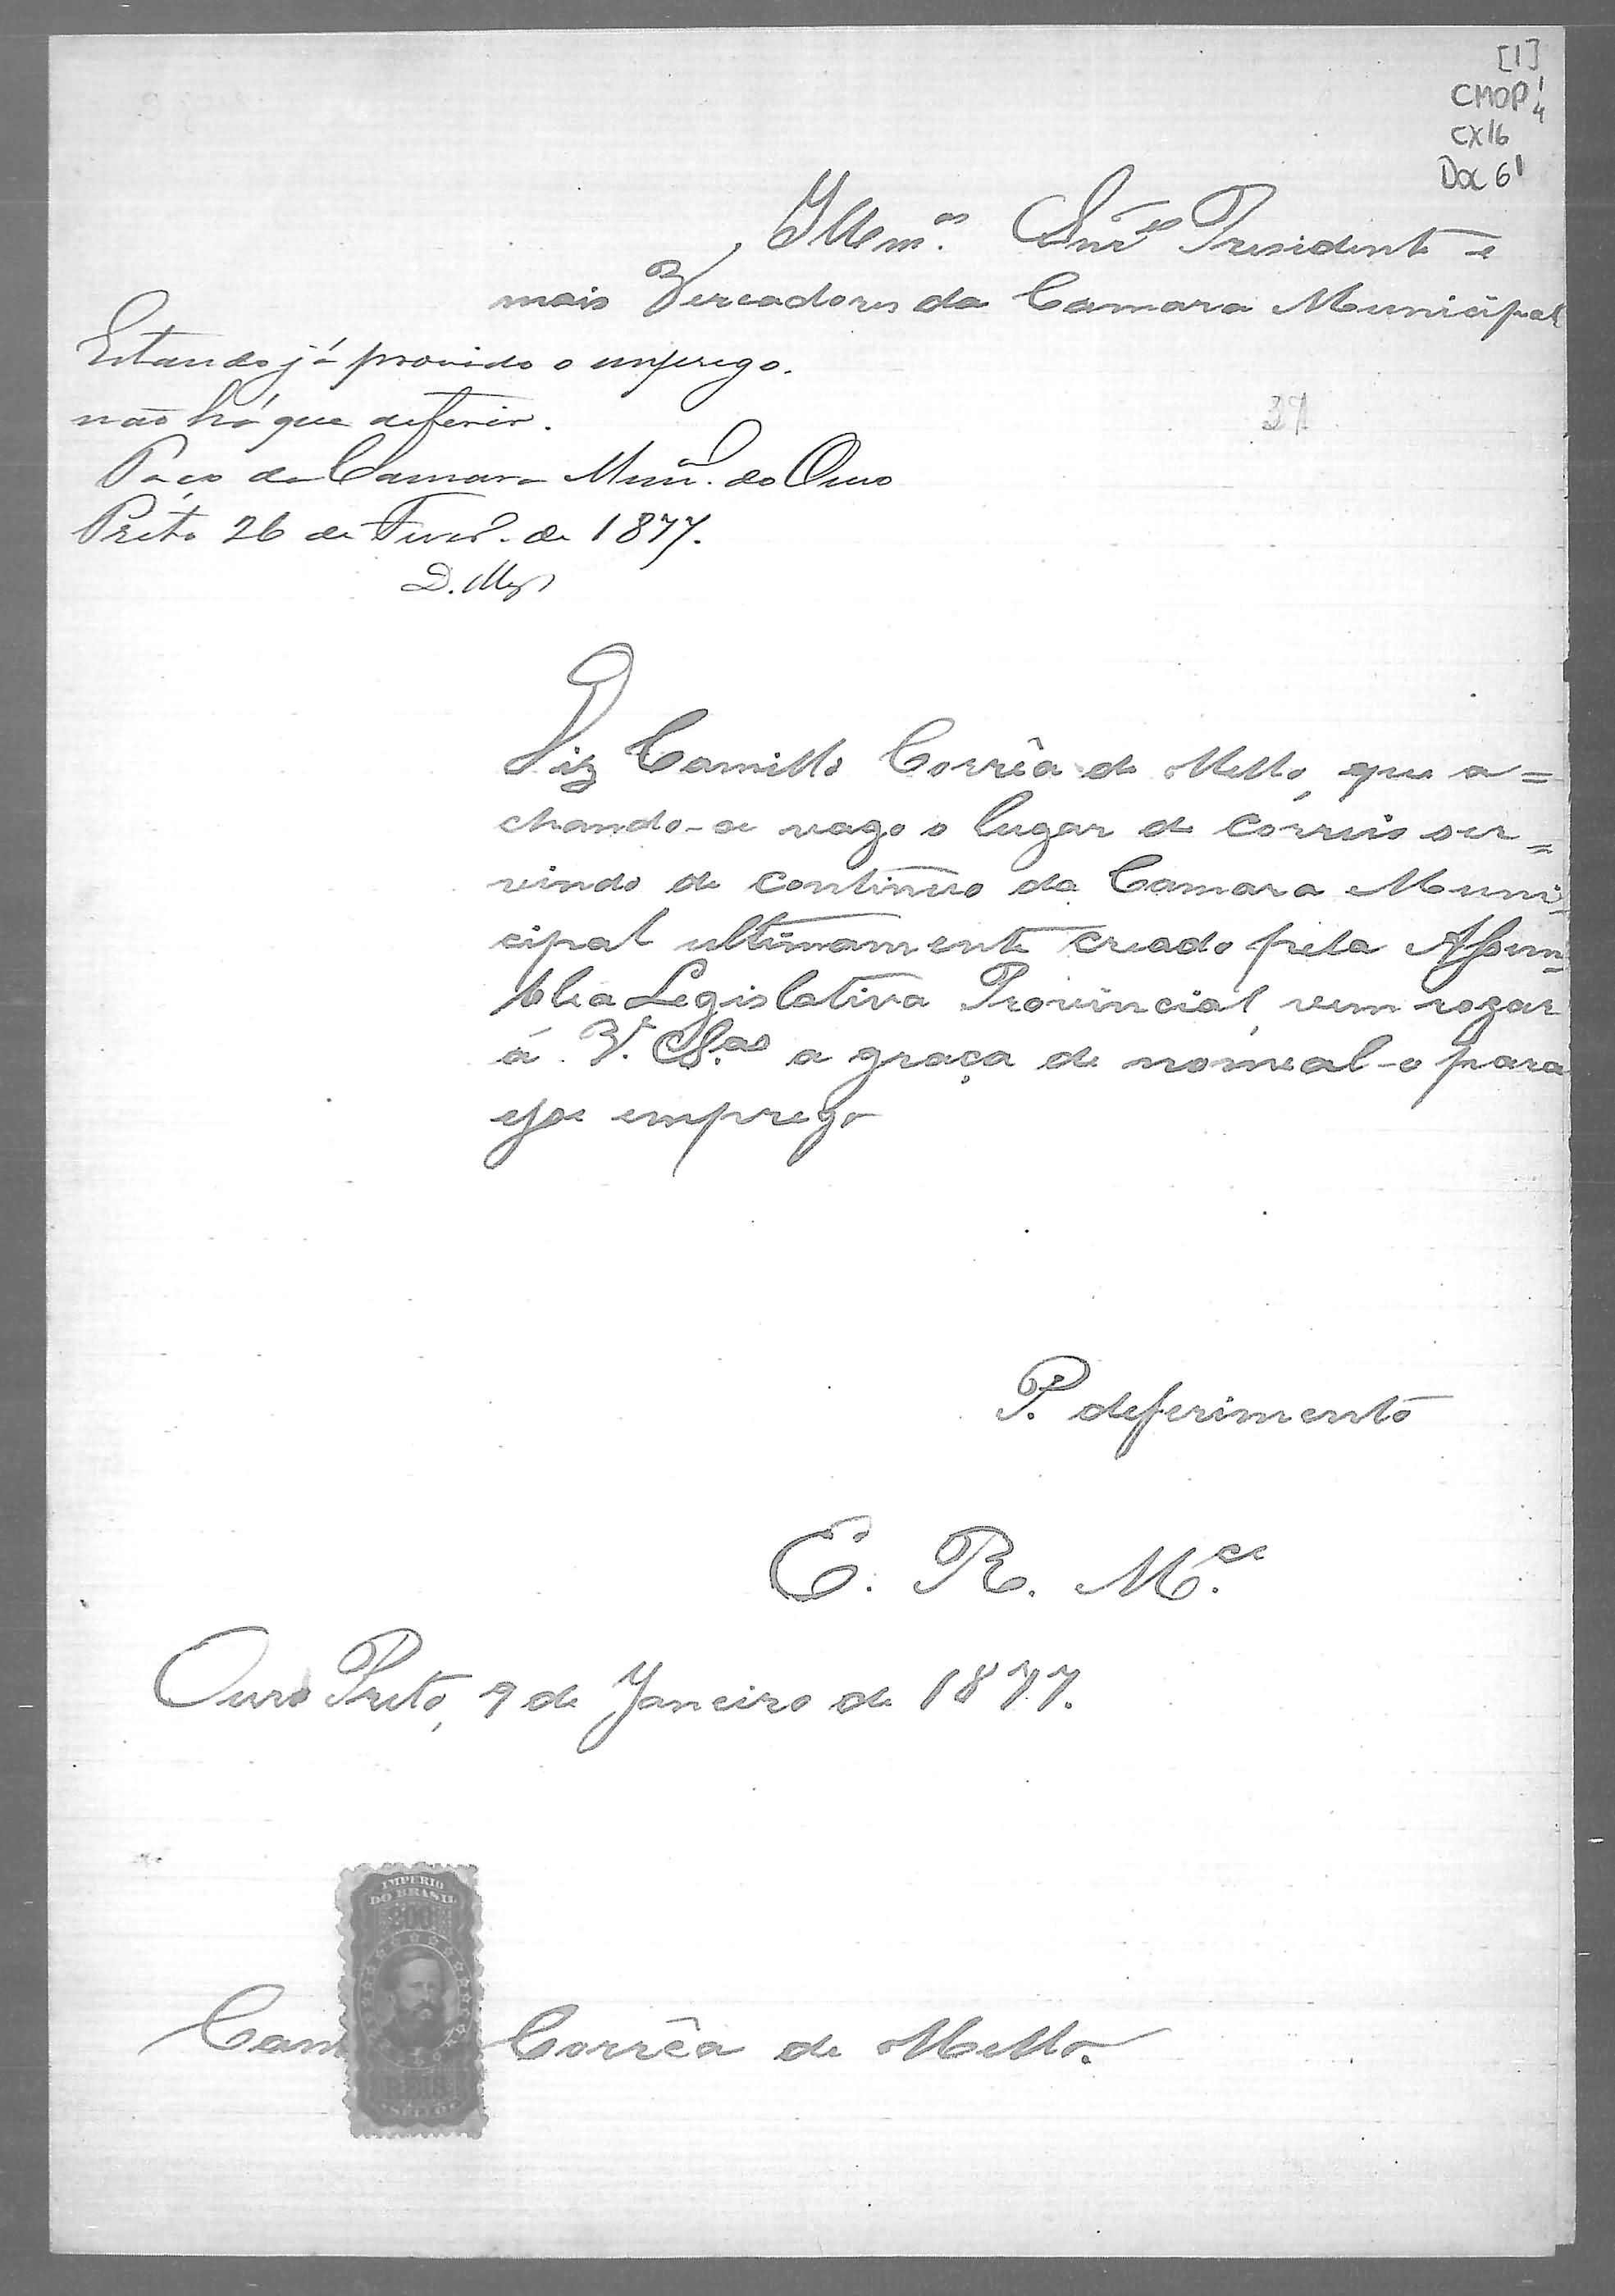 [1]
CMOP 1/4
CX16
Doc 61
Illmos. Snres Presidente e
mais Vereadores da Camara Municipal
Estando já provido o emprego.
não há que deferir.
Paço da Camara Munal. do Ouro
Preto 26 de Fevro. de 1877.
37
Diz Camillo Corrêa de Mello, que a=
chando-se vago o lugar de correio ser=
vindo de continuo da Camara Muni
cipal ultimamente creado pela Assem=
bléa Legislativa Provincial, vem rogar
á V. S.as a graça de nomeal-o para
esse emprego
P. deferimento
E. R. M.ce
Ouro Preto, 9 de Janeiro de 1877.
IMPERIO
DO BRASIL
200
REIS
SELLO
Cam Corrêa de Mello.